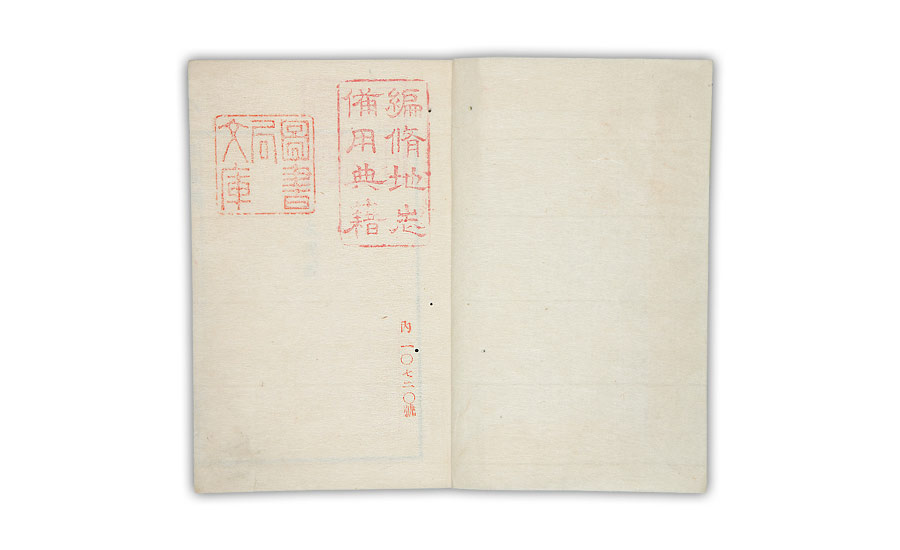 編脩地志
備用典籍
圖書
局
文庫
内一〇七二〇號